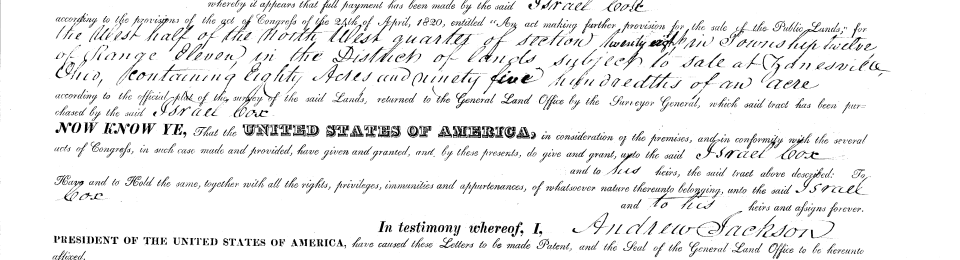 whereby it appears that full payment has been made by the said Israel Cox
according to the provisions of the act of Congress of the 24th of April, 1820, entitled "An act making further provision for the sale of the Public Lands," for
the West half of the North West quarter of section twenty eight in Township twelve
of Range Eleven in the District of lands subject to sale at Zanesville,
Ohio, containing Eighty Acres and ninety five hundredths of an acre
according to the official plat of the survey of the said Lands, returned to the General Land Office by the Surveyor General, which said tract has been pur-
chased by the said Israel Cox
NOW KNOW YE, That the UNITED STATES OF AMERICA, in consideration of the premises, and in conformity with the several
acts of Congress, in such case made and provided, have given and granted, and, by these presents, do give and grant, unto the said Israel Cox
and to his heirs, the said tract above described: To
Have and to Hold the same, together with all the rights, privileges, immunities and appurtenances, of whatsoever nature thereunto belonging, unto the said Israel
Cox and to his heirs and assigns forever.
In testimony whereof, I, Andrew Jackson
PRESIDENT OF THE UNITED STATES OF AMERICA, have caused these Letters to be made Patent, and the Seal of the General Land Office to be hereunto
affixed.